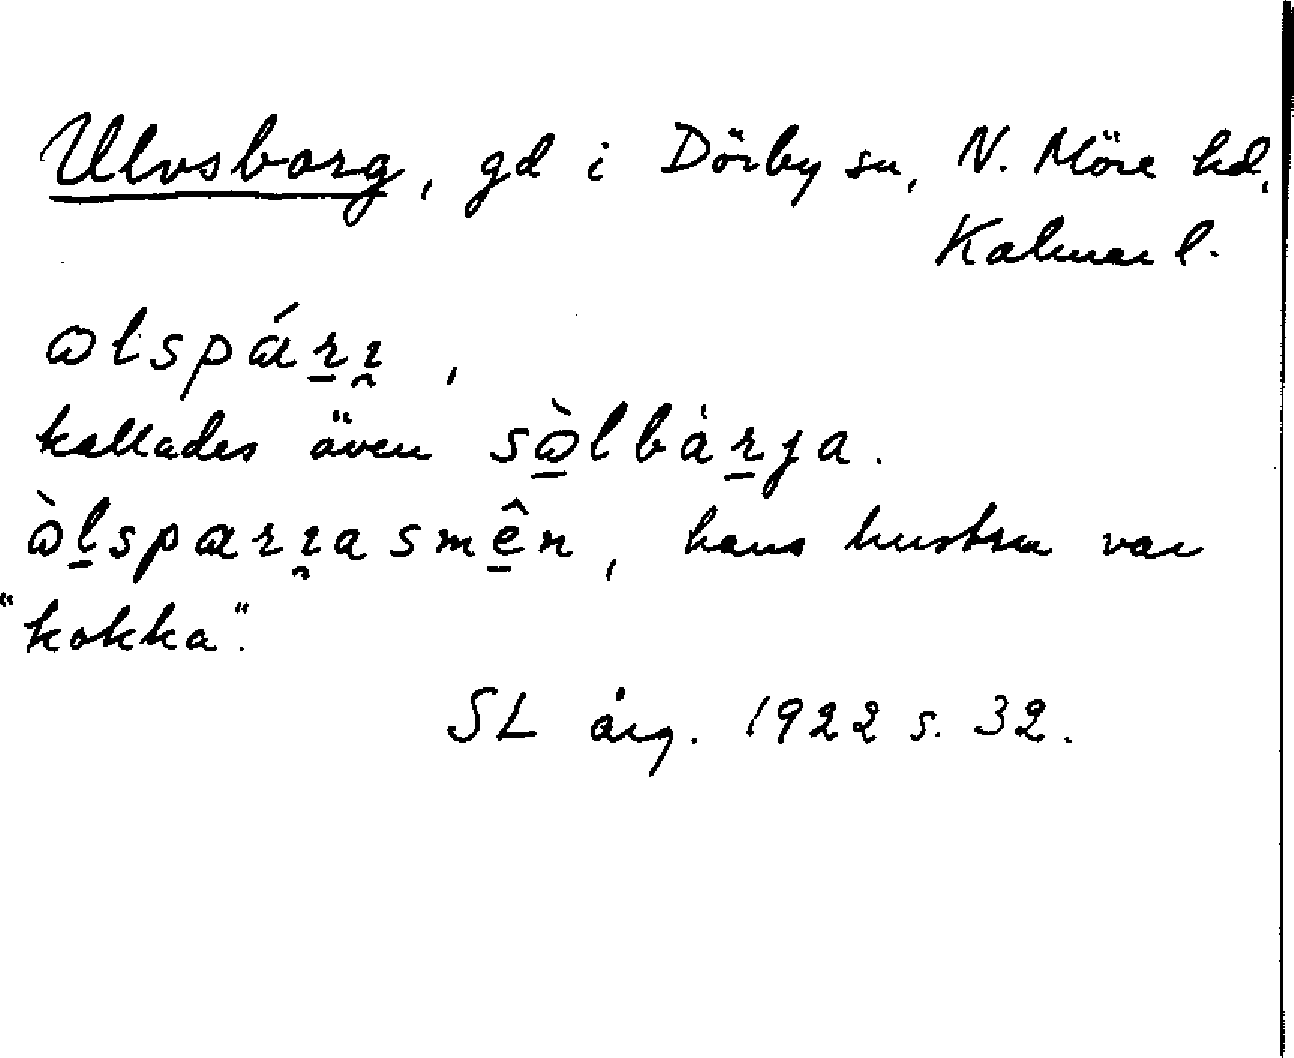 Ulvsborg, gd i Dörby sn, N. Möre hd,
Kalmar l.
ɷlspárɪ̯,
kallades även sɷ̀lbàrja.
ɷ̀lsparɪ̯asmên, hans hustru var
"kokka".
SL årg. 1922 s. 32.